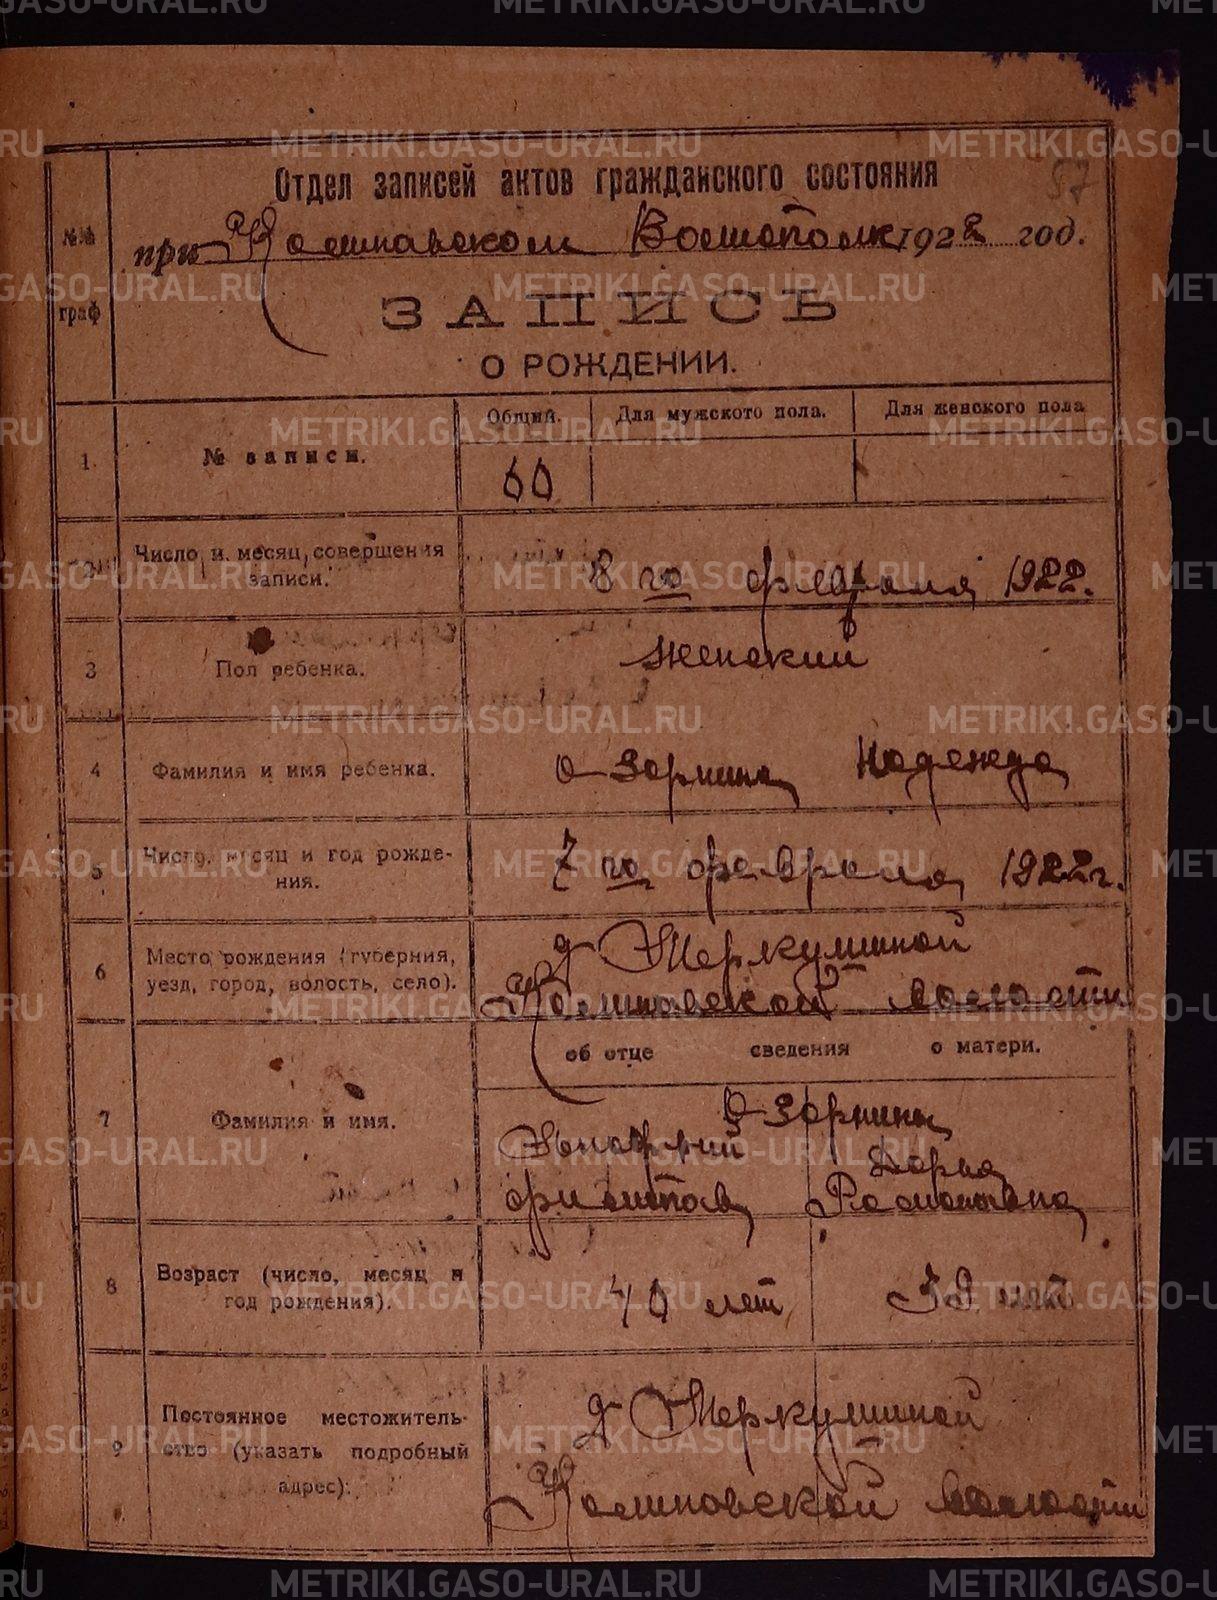 57
Отдел записей актов гражданского состояния
при Волисполк 1922 год.
№№ граф
ЗАПИСЬ
О РОЖДЕНИИ.
Общий. Для мужского пола. Для женского пола
1 № записи. 60
2 Число и месяц совершения записи. 8 го февраля 1922.
3 Пол ребенка. женский
4 Фамилия и имя ребенка. Озорнина Надежда
5 Число, месяц и год рождения. 7 го февраля 1922 г.
6 Место рождения (губерния, уезд, город, волость, село). д Меркушиной
волости
об отце сведения о матери.
7 Фамилия и имя. Озорнины
Дарья
8 Возраст (число, месяц и год рождения). 40 лет 39 лет
9 Постоянное местожительство (указать подробный адрес): д Меркушиной
волости
METRIKI.GASO-URAL.RU